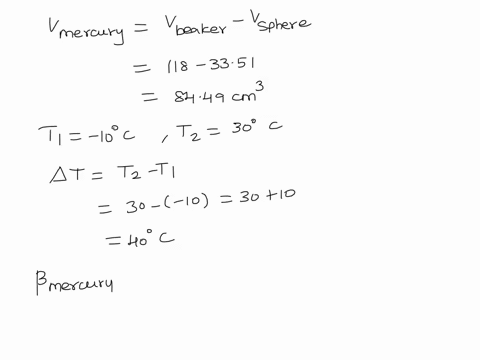 Vmercury = Vbeaker - Vsphere
= 118 - 33.51
= 84.49 cm³
T₁ = -10°C , T₂ = 30° C
ΔT = T₂ - T₁
= 30 - (-10) = 30 + 10
= 40° C
βmercury